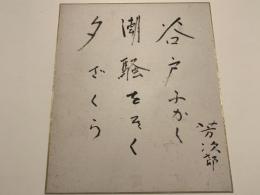 谷戸ふかく
潮騒とそく
夕ざくら
芳次郎